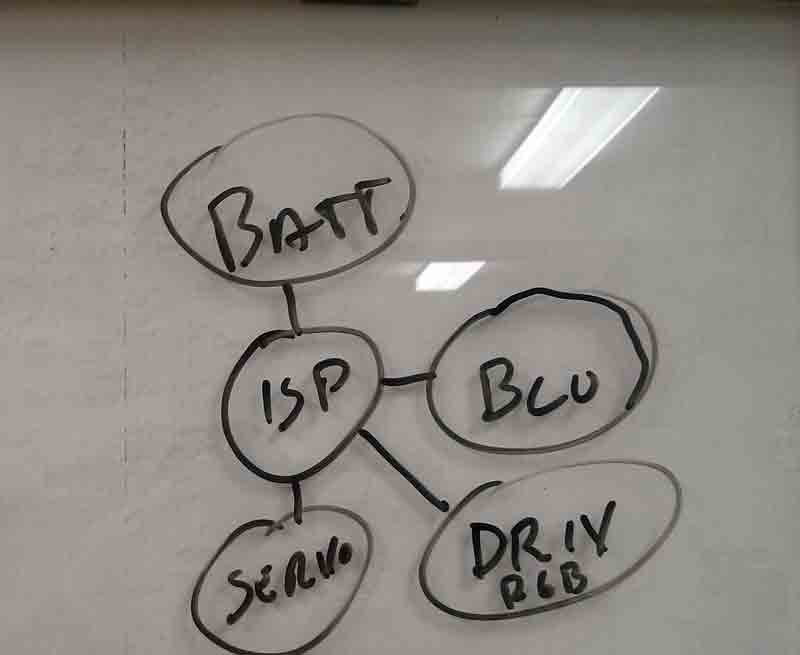 BATT
ISP
BLU
SERVO
DRIV
RGB